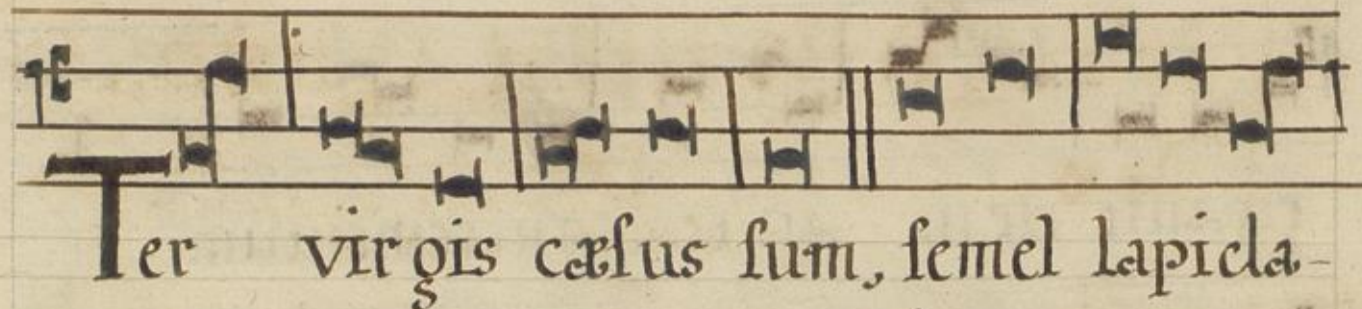 Ter virgis cæſus ſum, ſemel lapida-